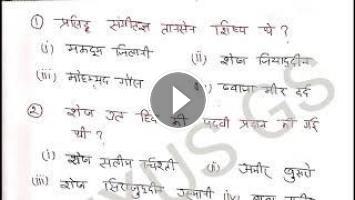 ① प्रसिद्ध संगीतज्ञ तानसेन शिष्य थे ?
(i) मकदूम जिलानी (ii) शेख जियाउद्दीन
(iii) मोहम्मद गौस ख्वाजा मीर दर्द
② शेख उल हिंद की पदवी प्रदान की गई
थी ?
(i) शेख सलीम चिश्ती (ii) अमीर खुसरो
(iii) शेख सिराजुद्दीन उस्मानी (iv) बाबा फरीद
NEXUS GS